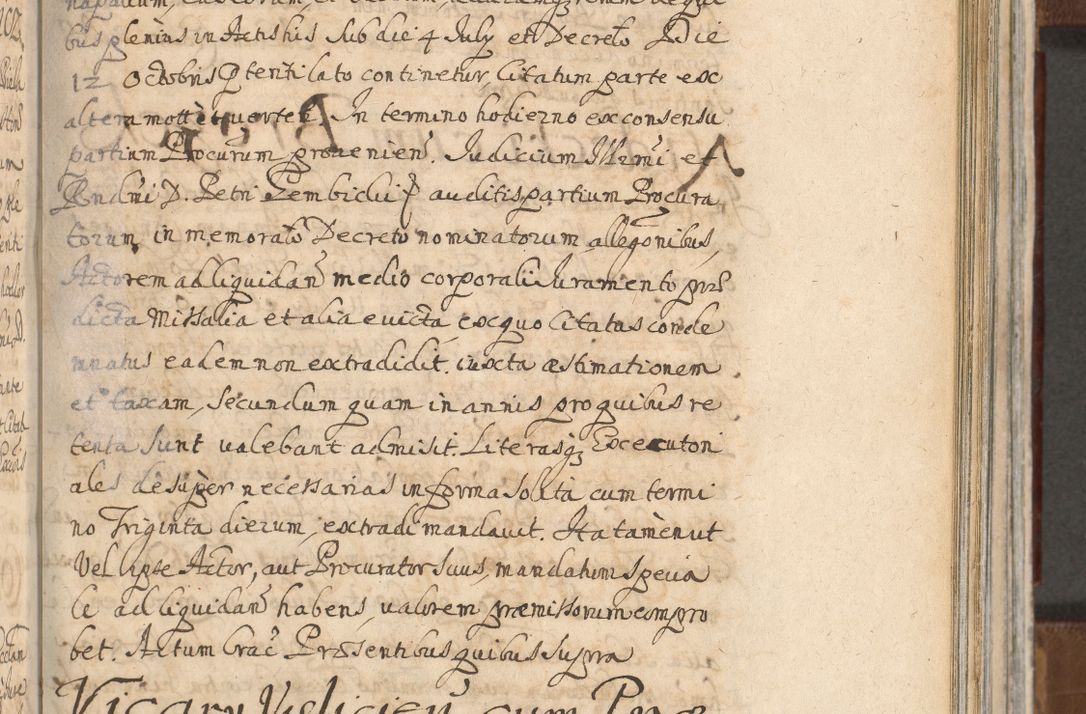 bus plenius in Actis his sub die 4 July et Decreto Die
12 Octobris P tentilato continetur, Citatum parte ex
altera motte et vertett. In termino hodierno ex consensu
partium Procurum provenienѕ. Judicium Illrmi et
Rndmi D. Petri Gembicki auditis partium Procura
torum, in memorato Decreto nominatorum allegonibus,
Actorem ad liquidan medio corporali Juramento præ
dicta Missalia et alia evicta, ex quo Citatus conde
mnatus eadem non extradidit. iuxta æstimationem
et taxam, secundum quam in annis pro quibus re
tenta sunt valebant admisit. Literasq Executori
ales desuper necessarias in forma solita cum termi
no Triginta dierum, extradi mandavit. Ita tamen ut
Vel ipse Actor, aut Procurator suus, mandatum specia
le ad liquidan habens, valorem præmissorum compro
bet. Actum Crac Præsentibus quibus supra
Vicary Vielicien cum